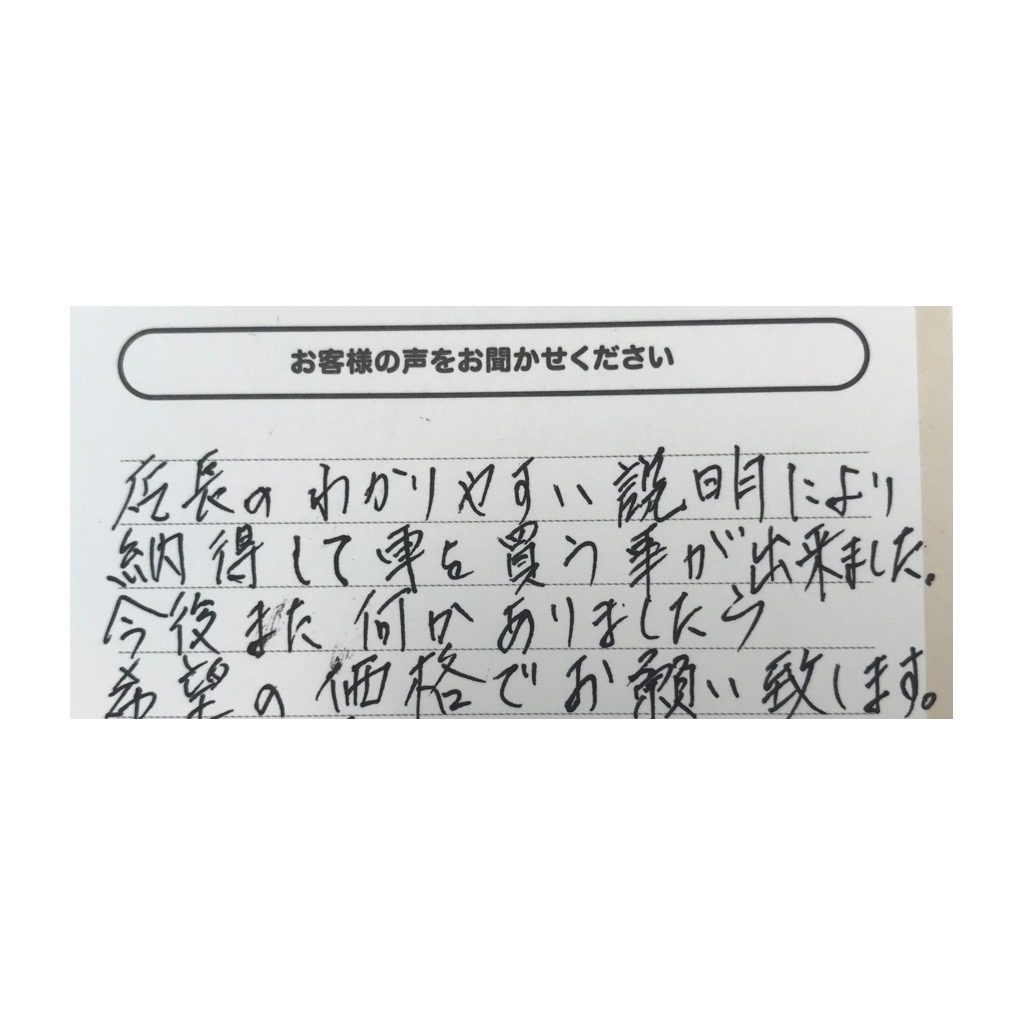 お客様の声をお聞かせください
店長のわかりやすい説明により
納得して車を買う事が出来ました。
今後また何かありましたら
希望の価格でお願い致します。